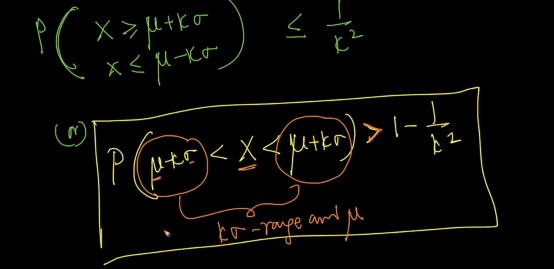 P ( X ≥ μ+kσ
X ≤ μ-kσ ) ≤ 1/k²
(or)
P ( μ-kσ < X < μ+kσ ) > 1 - 1/k²
kσ-range and μ